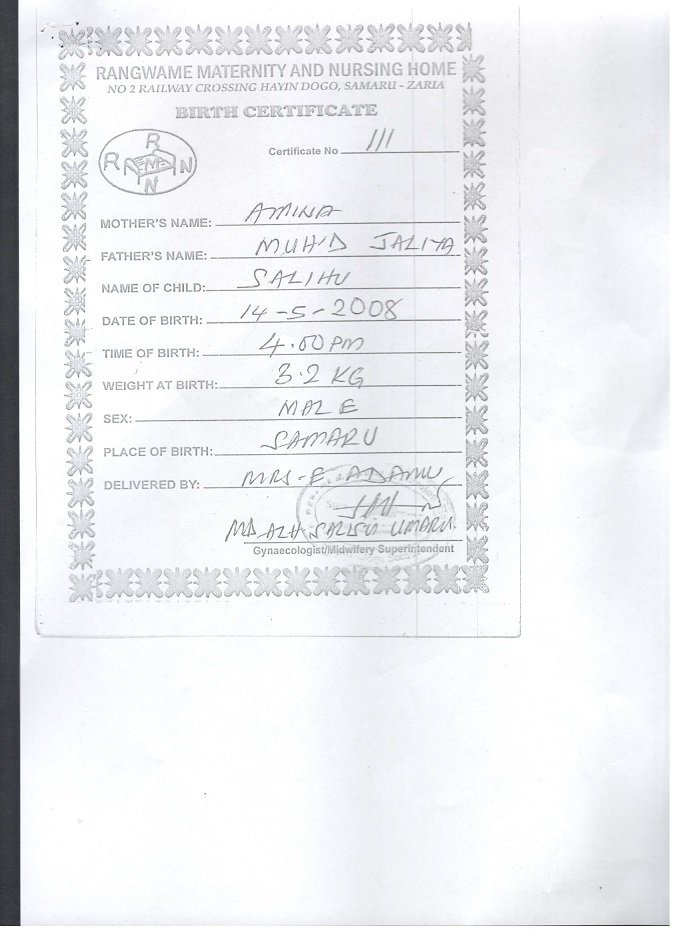 RANGWAME MATERNITY AND NURSING HOME
NO 2 RAILWAY CROSSING HAYIN DOGO, SAMARU - ZARIA
BIRTH CERTIFICATE
Certificate No 111
MOTHER'S NAME: AMINA
FATHER'S NAME: MUH'D JALIYA
NAME OF CHILD: SALIHU
DATE OF BIRTH: 14-5-2008
TIME OF BIRTH: 4.00 PM
WEIGHT AT BIRTH: 3.2 KG
SEX: MALE
PLACE OF BIRTH: SAMARU
DELIVERED BY: MRS-E. ADAMU
SALISU UMARU
Gynaecologist/Midwifery Superintendent